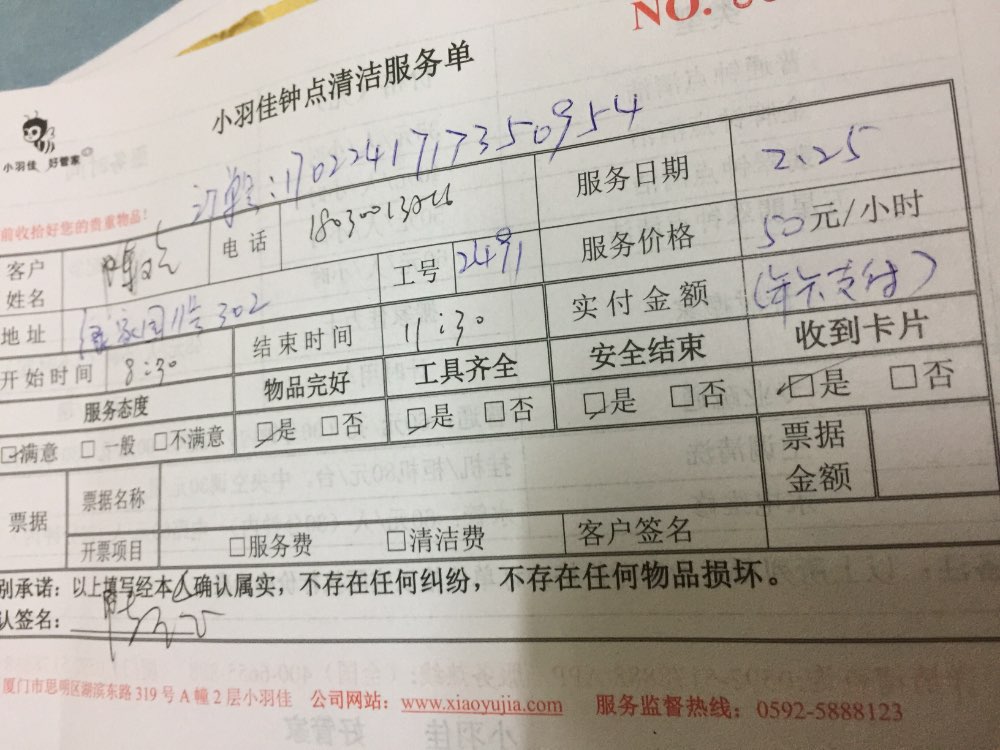 NO.
小羽佳钟点清洁服务单
小羽佳 好管家
订单:170224171735​0954
前收拾好您的贵重物品!
客户姓名 电话 服务日期 2.25
工号 2491 服务价格 50元/小时
地址 302 实付金额 支付)
开始时间 8:30 结束时间 11:30 安全结束 收到卡片
服务态度 物品完好 工具齐全 ☑是 □否 ☑是 □否
☑满意 □一般 □不满意 ☑是 □否 ☑是 □否
票据 票据名称 票据金额
开票项目 □服务费 □清洁费 客户签名
别承诺:以上填写经本人确认属实,不存在任何纠纷,不存在任何物品损坏。
认签名:
厦门市思明区湖滨东路 319 号 A 幢 2 层小羽佳 公司网站:www.xiaoyujia.com 服务监督热线:0592-5888123